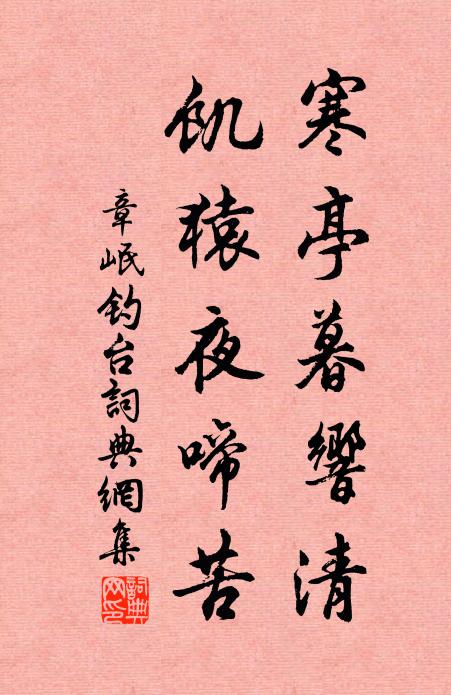 寒亭暮響清
飢猿夜啼苦
章岷釣台詞典網集
詞典网印